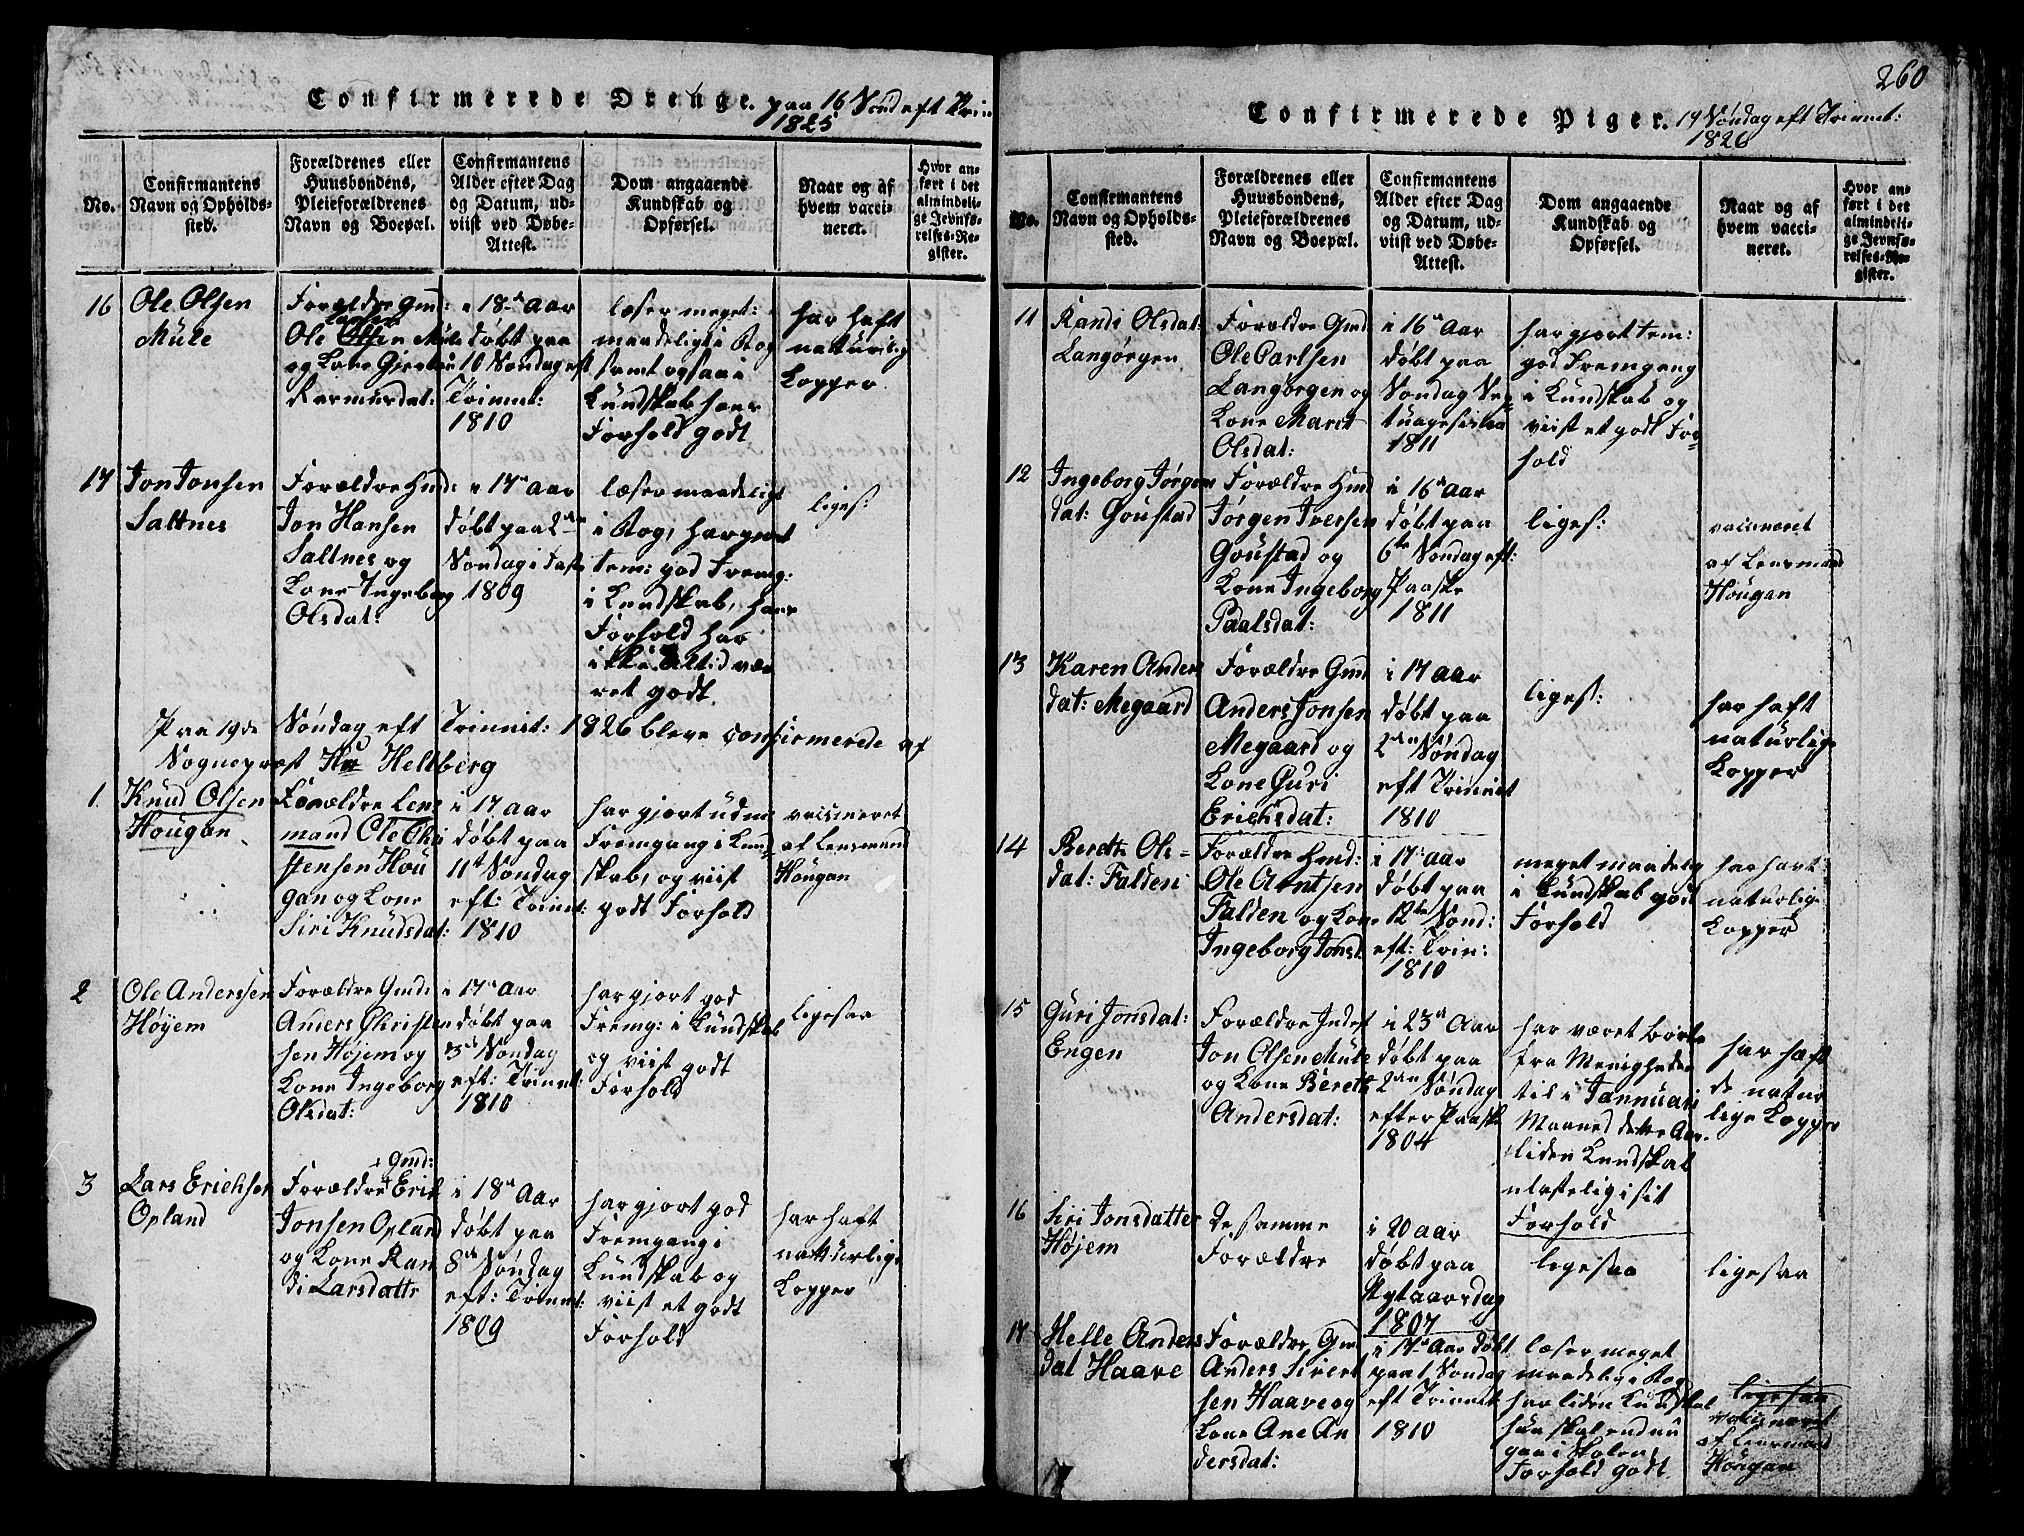 Confirmerede Drenge. paa 16 Sønd eft Trin
1825
No.
Confirmantens
Navn og Opholds-
sted.
Forældrenes eller
Huusbondens,
Pleieforældrenes
Navn og Boepæl.
Confirmantens
Alder efter Dag
og Datum, ud-
viist ved Døbe-
Attest.
Dom angaaende
Kundskab og
Opførsel.
Naar og af
hvem vacci-
neret.
Hvor an-
ført i det
almindeli-
ge Jevnfø-
relses-Re-
gister.
16
Ole Olsen
Mule
Forældre Gmd:
Ole Olsen Mule
og Kone Gjertru
Rasmusdat:
i 18de Aar
døbt paa
16 Søndag eft
Trinnit:
1810
læser meget:
maadelig i Bog
samt ogsaa i
Kundskab hans
Forhold godt
har haft
naturlig
Kopper
17
Jon Jonsen
Saltnes
Forældre Hmd:
Jon Hansen
Saltnes og
Kone Ingeborg
Olsdat:
i 17de Aar
døbt paa 2den
Søndag i Fast
1809
læser maadeligt
i Bog, har gjort
tem: god Fremg:
i Kundskab, hans
Forhold har
ikke altid væ
ret godt.
liges:
Paa 19de Søndag eft Trinnit: 1826 bleve confirmerede af
Sognepræst Hr Hellberg
1.
Knud Olsen
Hougan
Forældre Lens
mand Ole Chri
stensen Hou
gan og Kone
Siri Knudsdat:
i 17 Aar
døbt paa
11te Søndag
eft: Trinnit:
1810
har gjort udm
Fremgang i Kund
skab, og viist
godt Forhold
vaccineret
af Lensmand
Hougan
2
Ole Anderssen
Høyem
Forældre Gmd:
Anders Christen
sen Høiem og
Kone Ingeborg
Olsdat:
i 17de Aar
døbt paa
3die Søndag
eft: Trinnit:
1810
har gjort god
Fremg: i Kundskab
og viist godt
Forhold
ligesaa
3
Lars Erichsen
Opland
Gmd:
Forældre Erik
Jonsen Opland
og Kone Ran
di Larsdattr
i 18de Aar
døbt paa
8de Søndag
eft: Trinnit:
1809
har gjort god
Fremgang i
Kundskab og
viist et godt
Forhold
har haft
naturlige
Kopper
260
Confirmerede Piger. 19 Søndag eft Trinnit:
1826
No.
Confirmantens
Navn og Opholds-
sted.
Forældrenes eller
Huusbondens,
Pleieforældrenes
Navn og Boepæl.
Confirmantens
Alder efter Dag
og Datum, ud-
viist ved Døbe-
Attest.
Dom angaaende
Kundskab og
Opførsel.
Naar og af
hvem vacci-
neret.
Hvor an-
ført i det
almindeli-
ge Jevnfø-
relses-Re-
gister.
11
Randi Olsdat:
Langørgen
Forældre Gmd
Ole Carlsen
Langørgen og
Kone Marit
Olsdat:
i 16de Aar
døbt paa
Søndag Sep
tuagesima
1811
har gjort tem:
god Fremgang
i Kundskab og
viist et godt For-
hold
12
Ingeborg Jørgens
dat: Goustad
Forældre Hmd
Jørgen Iversen
Goustad og
Kone Ingeborg
Paalsdat:
i 16de Aar
døbt paa
6te Søndag eft:
Paaske
1811
liges:
vaccineret
af Lensmand
Hougan
13
Karen Anders
dat: Megaard
Forældre Gmd
Anders Jonsen
Megaard og
Kone Guri
Erichsdat:
i 17 Aar
døbt paa
2den Søndag
eft Trinnit
1810
liges:
har haft
naturlige
Kopper
14
Berett Ols-
dat: Falden
Forældre Hmd:
Ole Arntsen
Falden og Kone
Ingeborg Jonsd:
i 17de Aar
døbt paa
12te Sønd:
eft: Trin:
1810
meget maadelig
i Kundskab godt
Forhold
har havt
naturlige
Kopper
15
Guri Jonsdat:
Engen
Forældre Inderst
Jon Olsen Mule
og Kone Berett
Andersdat:
i 23de Aar
døbt paa
2den Søndag
efter Paaske
1804
har været borte
fra Menigheden
til i Jannuari
Maaned dette Aar.
liden Kundskab
ulastelig i sit
Forhold
har haft
de natur
lige Kopper
16
Siri Jonsdatter
Højem
de samme
Forældre
i 20 Aar
døbt paa
Nytaarsdag
1807
ligesaa
ligesaa
17
Helle Anders
dat Haave
Forældre Gmd
Anders Sivert
sen Haave og
Kone Ane An
dersdat:
i 17de Aar døbt
paa 1 Søndag
eft Trinnit
1810
læser meget
maadelig i Bog
har liden Kundskab
hun skal endnu
gaa i Skolen,
Forhold godt.
ligesaa
vaccineret
af Lensmand
Hougan